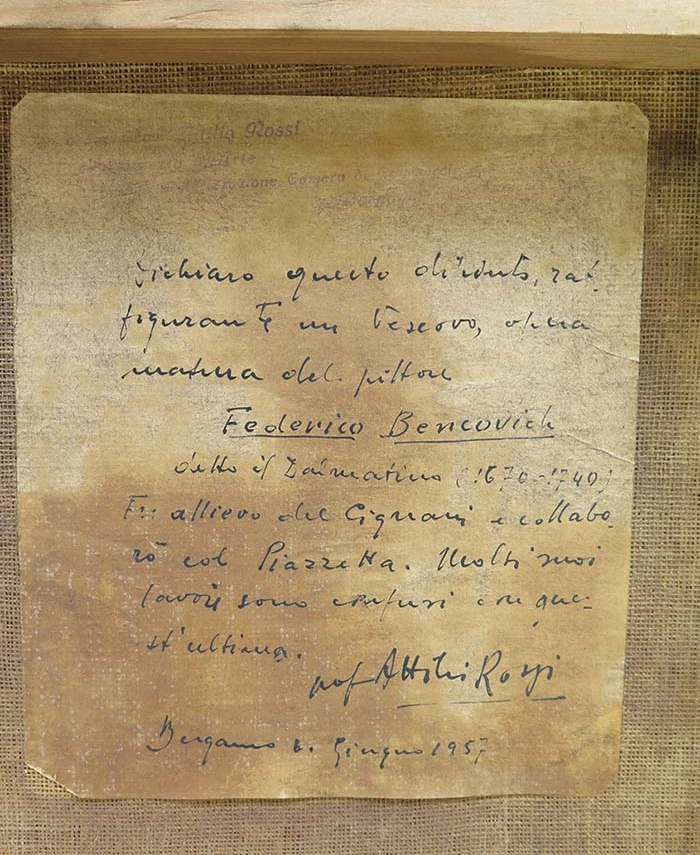 Attilio Rossi
Arte
Camera di
Dichiaro questo dipinto, raf-
figurante un Vescovo, opera
matura del pittore
Federico Bencovich
detto il Dalmatino (1670-1740)
Fu allievo del Cignani e collabo
rò col Piazzetta. Molti suoi
lavori sono confusi con que-
st'ultimo.
prof Attilio Rossi
Bergamo Giugno 1957